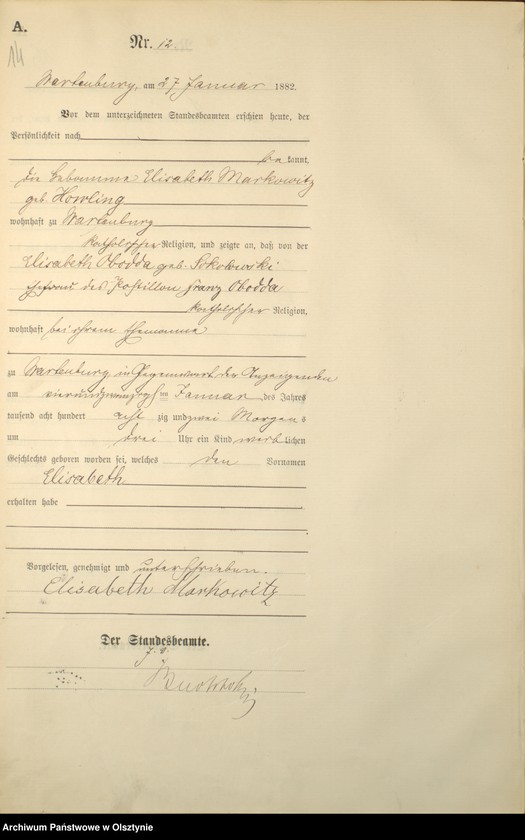 A.
14
Nr. 12.
Wartenburg, am 27 Januar 1882.
Vor dem unterzeichneten Standesbeamten erschien heute, der
Persönlichkeit nach
be kannt,
die Hebamme Elisabeth Markowitz
geb. Howling
wohnhaft zu Wartenburg
katholischer Religion, und zeigte an, daß von der
Elisabeth Obodda geb. Sokolowski
Ehefrau des Postillon Franz Obodda
katholischer Religion,
wohnhaft bei ihrem Ehemanne
zu Wartenburg in Gegenwart der Anzeigenden
am vierundzwanzigsten Januar des Jahres
tausend acht hundert acht zig und zwei Morgens
um drei Uhr ein Kind weiblichen
Geschlechts geboren worden sei, welches den Vornamen
Elisabeth
erhalten habe
Vorgelesen, genehmigt und unterschrieben.
Elisabeth Markowitz
Der Standesbeamte.
J. V.
Archiwum Państwowe w Olsztynie